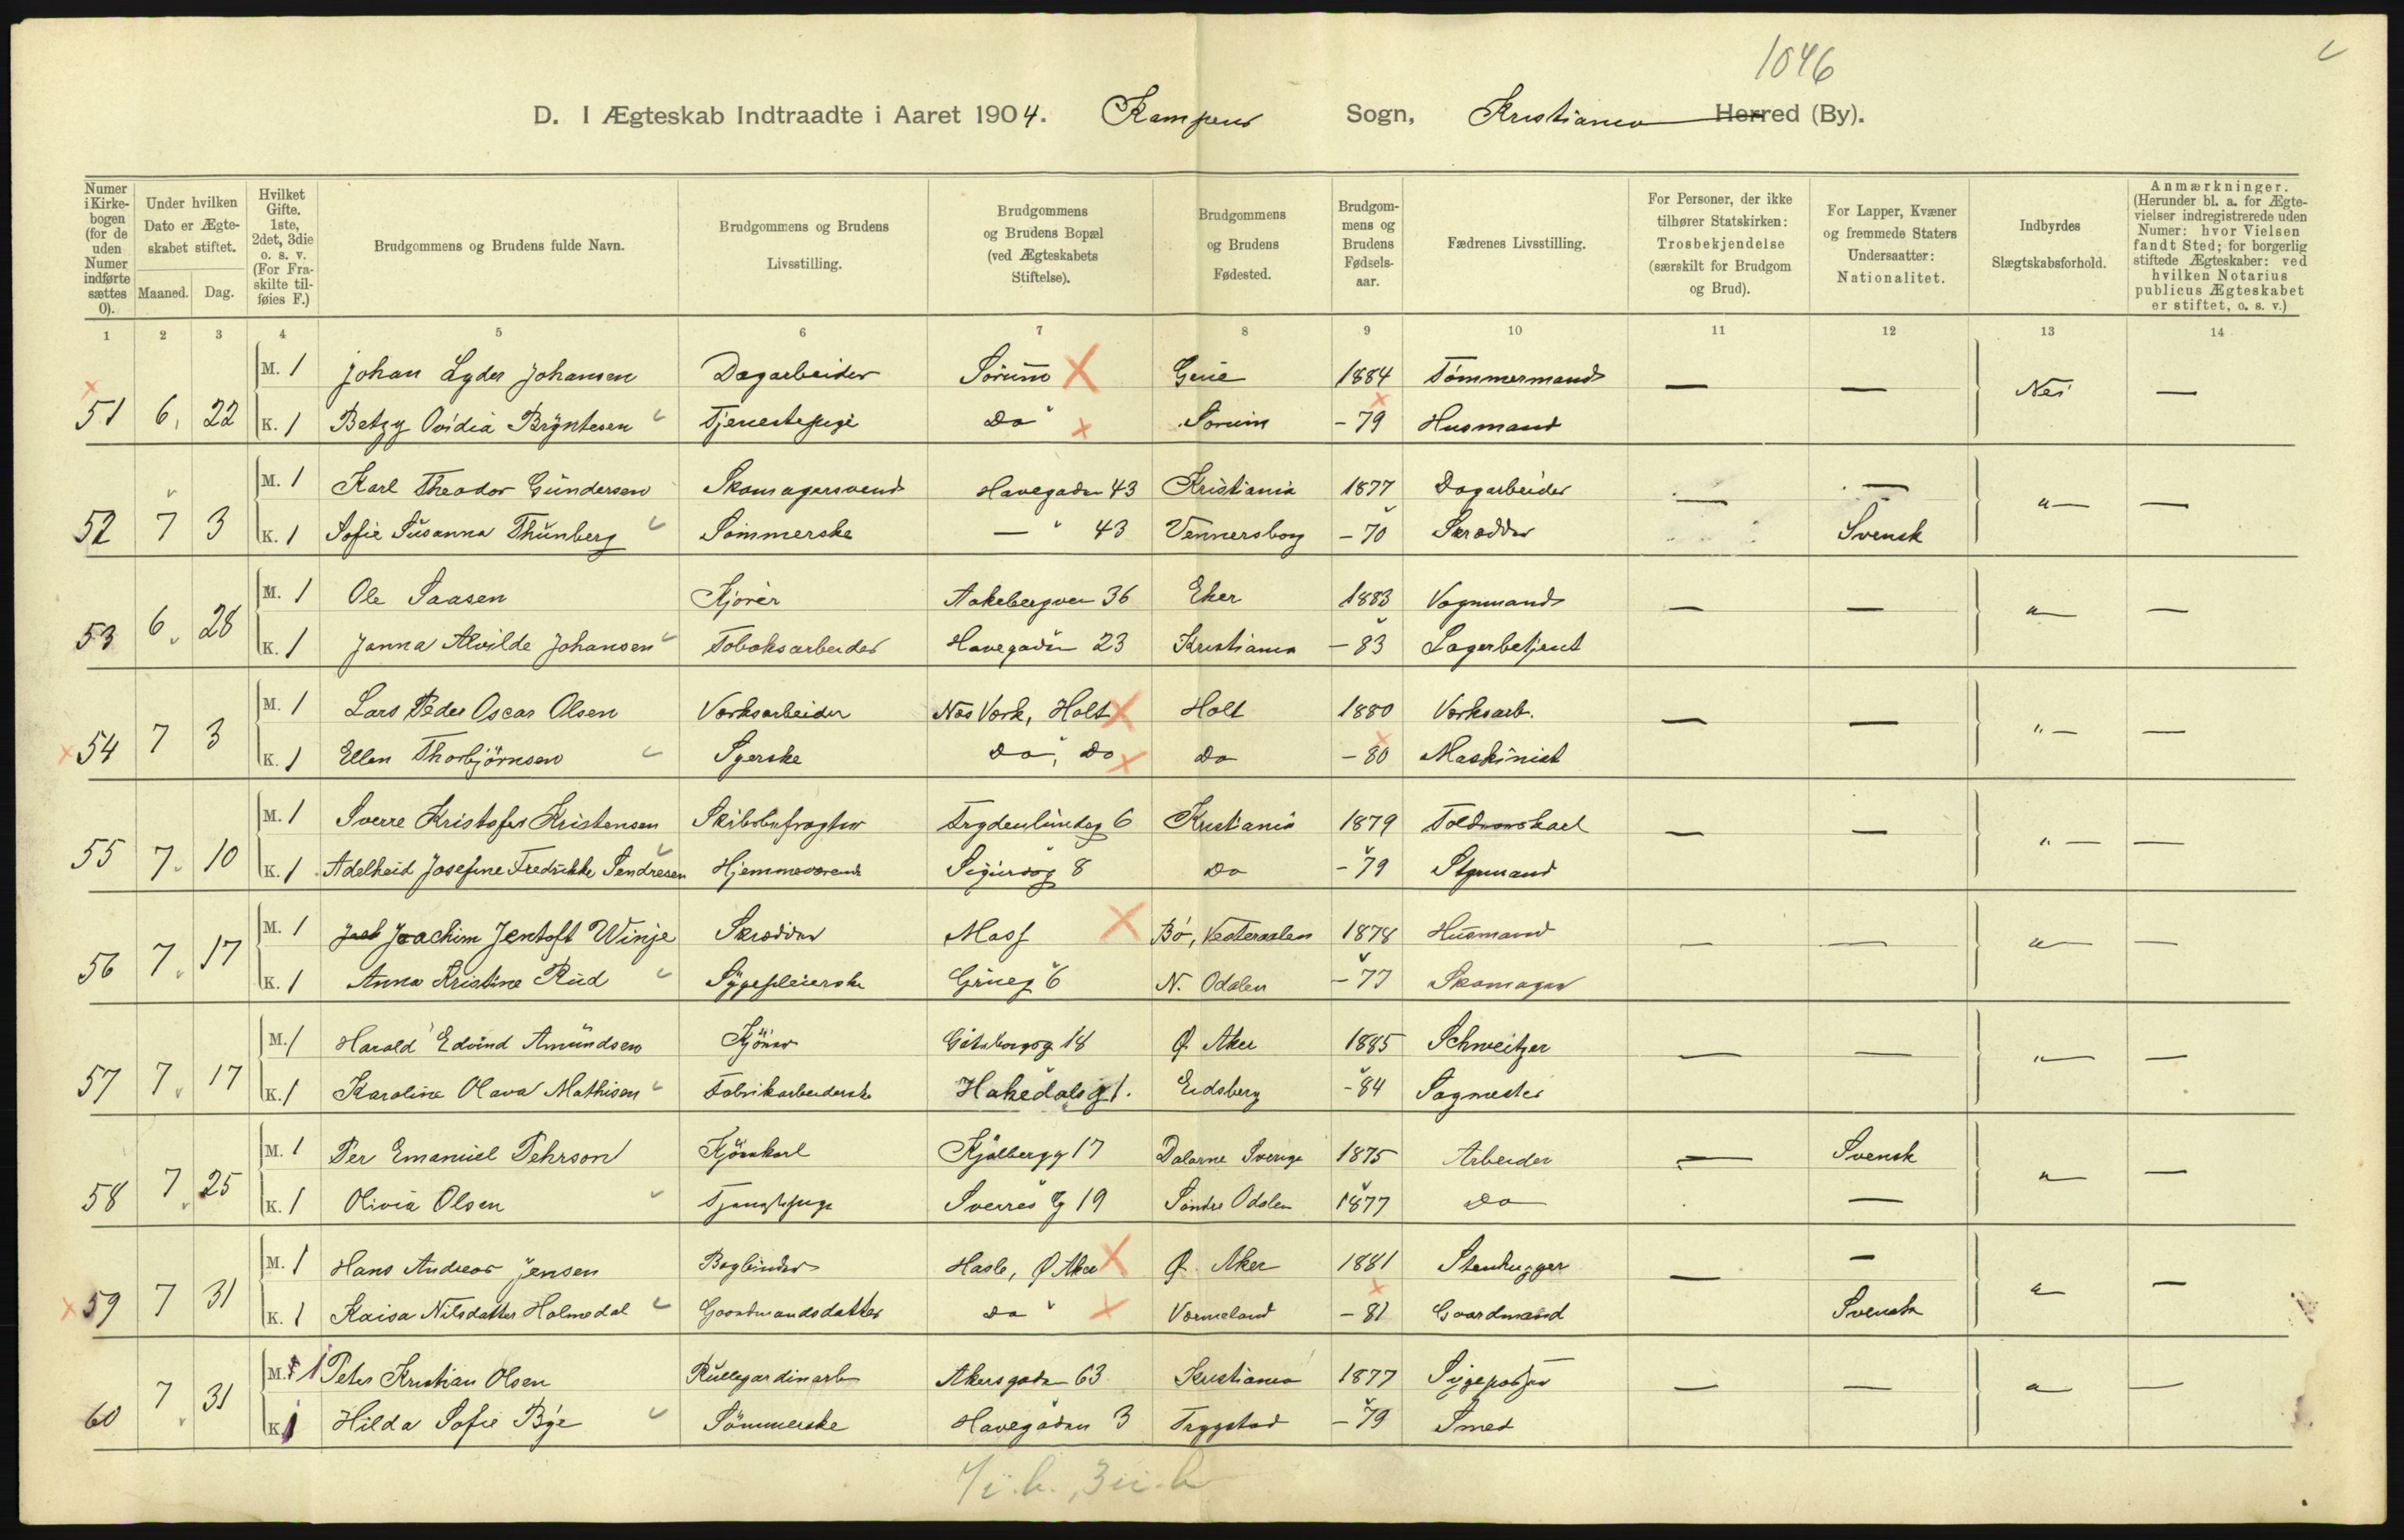 1046
D. I Ægteskab Indtraadte i Aaret 1904. Kampens Sogn, Kristiania Herred (By).
Numer i Kirkebogen (for de uden Numer indførte sættes 0). | Under hvilken Dato er Ægteskabet stiftet. Maaned. Dag. | Hvilket Gifte. 1ste, 2det, 3die o. s. v. (For Fraskilte tilføies F.) | Brudgommens og Brudens fulde Navn. | Brudgommens og Brudens Livsstilling. | Brudgommens og Brudens Bopæl (ved Ægteskabets Stiftelse). | Brudgommens og Brudens Fødested. | Brudgommens og Brudens Fødselsaar. | Fædrenes Livsstilling. | For Personer, der ikke tilhører Statskirken: Trosbekjendelse (særskilt for Brudgom og Brud). | For Lapper, Kvæner og fremmede Staters Undersaatter: Nationalitet. | Indbyrdes Slægtskabsforhold. | Anmærkninger. (Herunder bl. a. for Ægtevielser indregistrerede uden Numer: hvor Vielsen fandt Sted; for borgerlig stiftede Ægteskaber: ved hvilken Notarius publicus Ægteskabet er stiftet, o. s. v.)
1 2 3 4 5 6 7 8 9 10 11 12 13 14
M. 1 Johan Lyder Johansen Dagarbeider Sørum 1884 Tømmermand — — Nei —
51 6 22 K. 1 Betzy Ovidia Bryntesen Tjenestepige Do Sørum - 79 Husmand
M. 1 Karl Theodor Gundersen Skomagersvend Havegaden 43 Kristiania 1877 Dagarbeider — — „— —
52 7 3 K. 1 Sofie Susanna Thunberg Sømmerske — " 43 Vennersborg - 70 Skrædder Svensk
M. 1 Ole Saasen Kjører Aakebergven 36 Eker 1883 Vognmand — — „— —
53 6 28 K. 1 Janna Alvilde Johansen Tobaksarbeider Havegaden 23 Kristiania - 83 Lagerbetjent
M. 1 Lars Peder Oscar Olsen Værksarbeider Næs Værk, Holt Holt 1880 Værksarb. — — „— —
54 7 3 K. 1 Ellen Thorbjørnsen Syerske Do, Do Do - 80 Maskinist
M. 1 Sverre Kristofer Kristensen Skibsbefragter Frydenlundsg 6 Kristiania 1879 — — „— —
55 7 10 K. 1 Adelheid Josefine Fredrikke Sendresen Hjemmeværende Sigurdsg 8 Do - 79 Styrmand
M. 1 Joachim Jentoft Winje Skrædder Moss Bø, Vesteraalen 1878 Husmand — — „— —
56 7 17 K. 1 Anna Kristine Rud Sygepleierske Grueg 6 N. Odalen - 77 Skomager
M. 1 Harald Edvind Amundsen Kjører Gøteborgsg 18 Ø. Aker 1885 Schweitzer — — „— —
57 7 17 K. 1 Karoline Olava Mathisen Fabrikarbeiderske Hakedalsg 1. Eidsberg - 84 Sagmester
M. 1 Per Emanuel Pehrson Kjørekarl Kjølbergg 17 Dalarne Sverige 1875 Arbeider — Svensk „— —
58 7 25 K. 1 Olivia Olsen Tjenestepige Sverres g 19 Søndre Odalen 1877 Do —
M. 1 Hans Andreas Jensen Bogbinder Hasle, Ø Aker Ø. Aker 1881 Stenhugger — — „— —
59 7 31 K. 1 Kaisa Nilsdatter Holmedal Gaardmandsdatter Do " Værmeland - 81 Gaardmand Svensk
M. 1 Peter Kristian Olsen Rullegardinarb Akersgaden 63 Kristiania 1877 Sygepasser — — „— —
60 7 31 K. 1 Hilda Sofie Bye Sømmerske Havegaden 3 Trygstad - 79 Smed